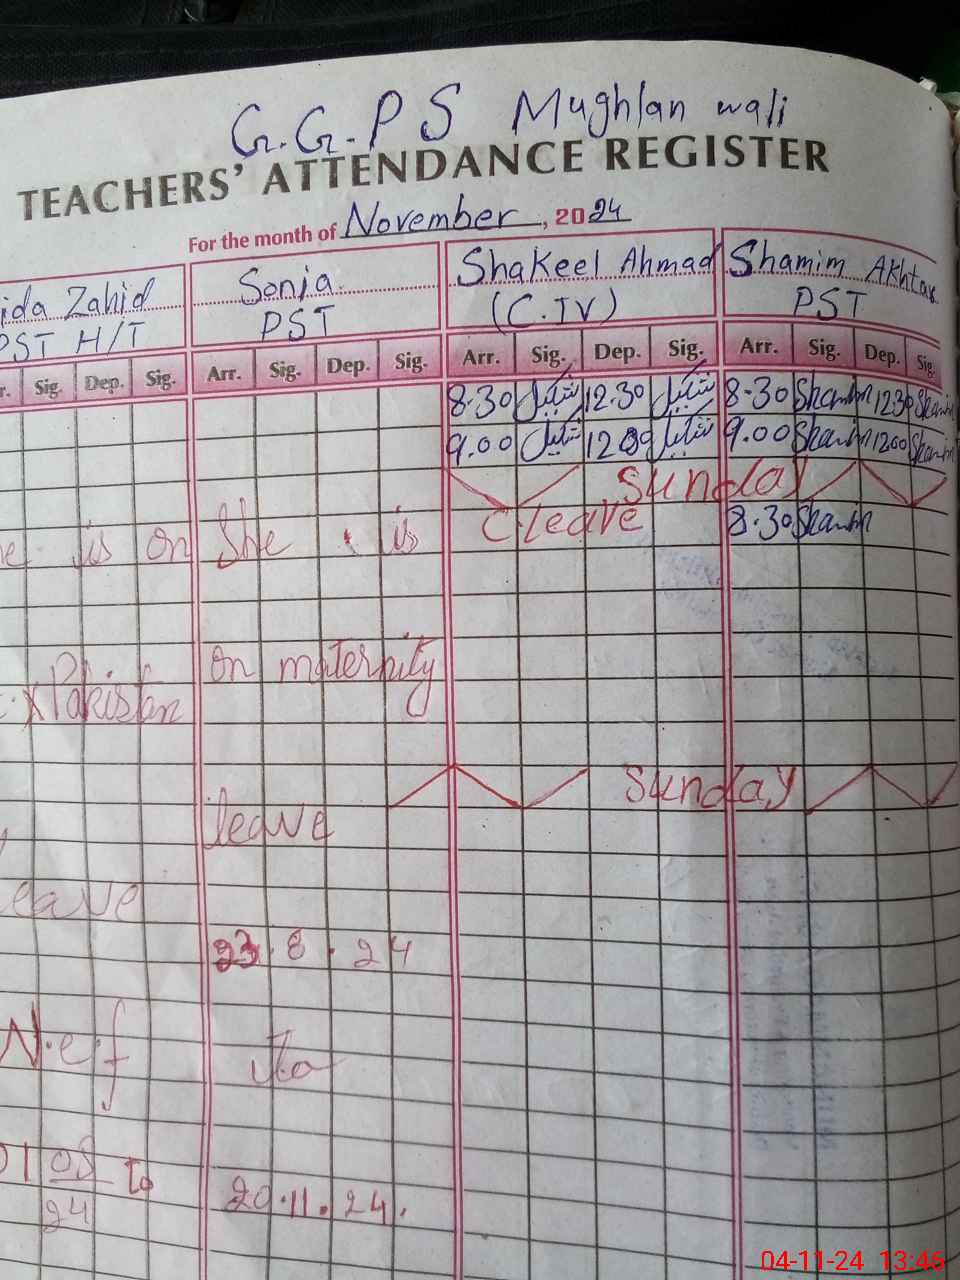 G.G.P S Mughlan wali
TEACHERS' ATTENDANCE REGISTER
For the month of November, 2024
ida Zahid Sonia Shakeel Ahmad Shamim Akhtar
PST H/T PST (C.IV) PST
r. Sig. Dep. Sig. Arr. Sig. Dep. Sig. Arr. Sig. Dep. Sig. Arr. Sig. Dep. Sig.
8.30 شکیل 12.30 شکیل 8.30 Shamim 1230 Shamim
9.00 شکیل 1200 شکیل 9.00 Shamim 1200 Shamim
Sunday
e is on She is C leave 8.30 Shamim
Pakistan on maternity
Sunday
leave
eave
23.8.24
W.e.f To
01 08 to
24 20.11.24.
04-11-24 13:46